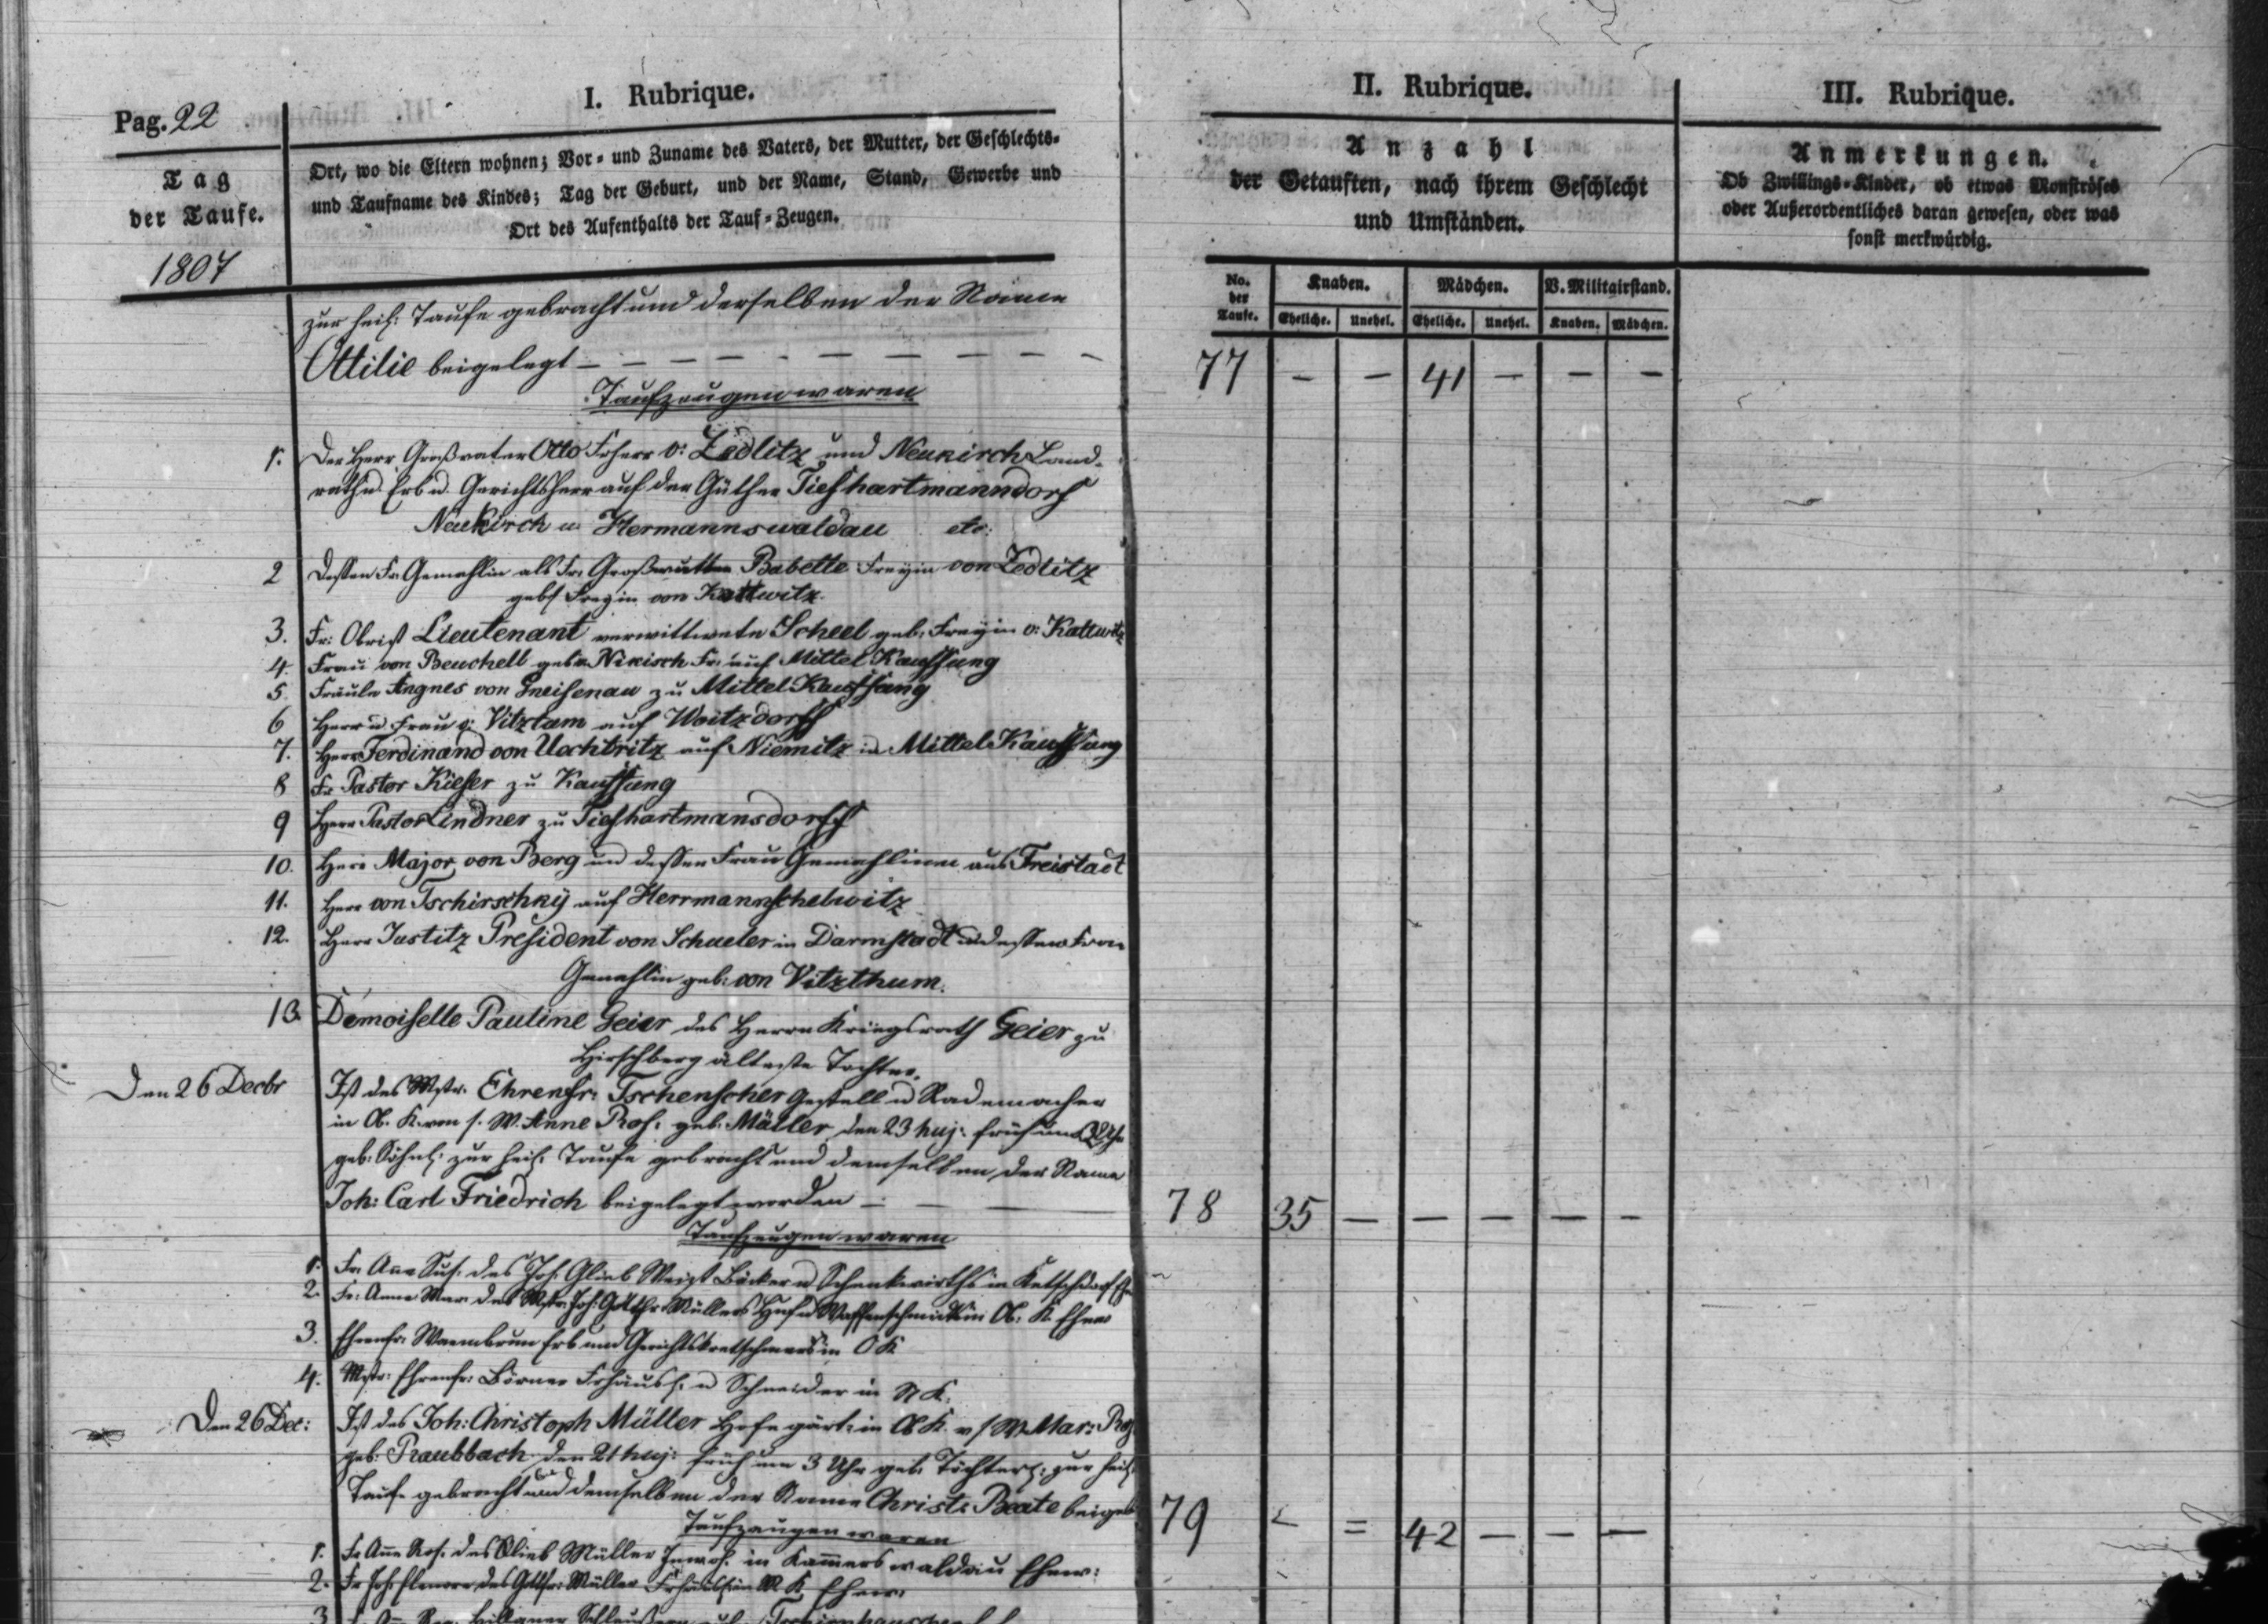 Pag. 22
I. Rubrique.
Tag
der Taufe.
1807
Ort, wo die Eltern wohnen; Vor- und Zuname des Vaters, der Mutter, der Geschlechts-
und Taufname des Kindes; Tag der Geburt, und der Name, Stand, Gewerbe und
Ort des Aufenthalts der Tauf-Zeugen.
II. Rubrique.
Anzahl
der Getauften, nach ihrem Geschlecht
und Umständen.
No. der Taufe.
Knaben. Mädchen. V. Militairstand.
Eheliche. Unehel. Eheliche. Unehel. Knaben. Mädchen.
III. Rubrique.
Anmerkungen.
Ob Zwillings-Kinder, ob etwas Monströses
oder Außerordentliches daran gewesen, oder was
sonst merkwürdig.
zur heil: Taufe gebracht und derselben der Name
Ottilie beigelegt — — — — — — — — —
77 — — 41 — — —
Taufzeugen waren
1. Der Herr Großvater Otto Frherr v: Zedlitz und Neukirch Land-
rath u Erb u. Gerichtsherr auf der Güther Tiefhartmanndorf
Neukirch u. Hermannswaldau etc:
2 Dessen Fr. Gemahlin als Fr. Großmutter Babette Freyin von Zedlitz
geb Freyin von Kottwitz
3. Fr: Obrist Lieutenant verwittwete Scheel geb. Freyin v: Kottwitz
4. Frau von Beuchell geb v. Nikisch Fr. auf Mittel Kauffung
5. Fräule Angnes von Gneisenau zu Mittel Kauffung
6 Herr u Frau v: Vitztum auf Woitzdorff
7. Herr Ferdinand von Uechtritz auf Niemitz in Mittel Kauffung
8 Fr Pastor Kieser zu Kauffung
9 Herr Pastor Lindner zu Tiefhartmansdorff
10. Herr Major von Berg und dessen Frau Gemahlinn aus Freistadt
11. Herr von Tschirschky auf Herrmannschelwitz
12. Herr Justitz President von Schueler in Darmstadt u dessen Frau
Gemahlin geb: von Vitzthum.
13 Demoiselle Pauline Geier des Herrn Kriegsrath Geier zu
Hirschberg älteste Tochter.
Den 26 Decbr Ist des Mstr. Ehrenfr: Tschenscher Gestell u Rademacher
in Ob. K. von s. W. Anne Ros: geb. Müller den 23 huj: früh um Uhr
geb: Söhnl: zur heil: Taufe gebracht und demselben der Name
Joh: Carl Friedrich beigelegt worden — — —
78 35 — — — — —
Taufzeugen waren
1. Fr. Ana Sus. des Joh. Glieb Weizt Bäcker u Schenkwirths in Ketschdorf
2. Fr: Anna Mar: des Mstr. Joh: Gottfr Müllers Huf u Waffenschmidts in Ob: K. Ehew
3. Ehrenfr: Warmbrun Erb und Gerichtskretschmers in O K
4. Mstr: Ehrenfr: Börner Frhäusl. u Schneider in N K.
Den 26 Dec: Ist des Joh: Christoph Müller Hofegärt: in Ob K. v s W. Mar: Reg
geb: Raubbach den 21 huj: früh um 3 Uhr geb: Töchterl: zur heil:
Taufe gebracht und demselben der Name Christ: Beate beigel
79 — = 42 — — —
Taufzeugen waren
1. Fr Ane Ros. des Glieb Müller Inwoh. in Kamerswaldau Ehew:
2. Fr Joh: Elenore des Gottfr: Müller Frhäusl: in M K Ehew:
3